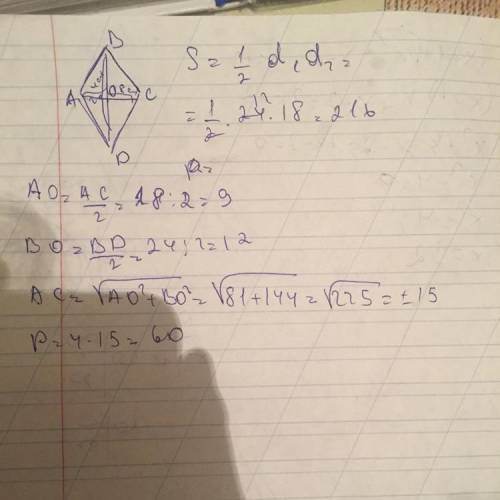 B
A O C
D
S = 1/2 d₁ d₂ =
= 1/2 · 24 · 18 = 216
AO = AC/2 = 18 : 2 = 9
BO = BD/2 = 24 : 2 = 12
AC = √AO²+BO² = √81+144 = √225 = ±15
P = 4·15 = 60